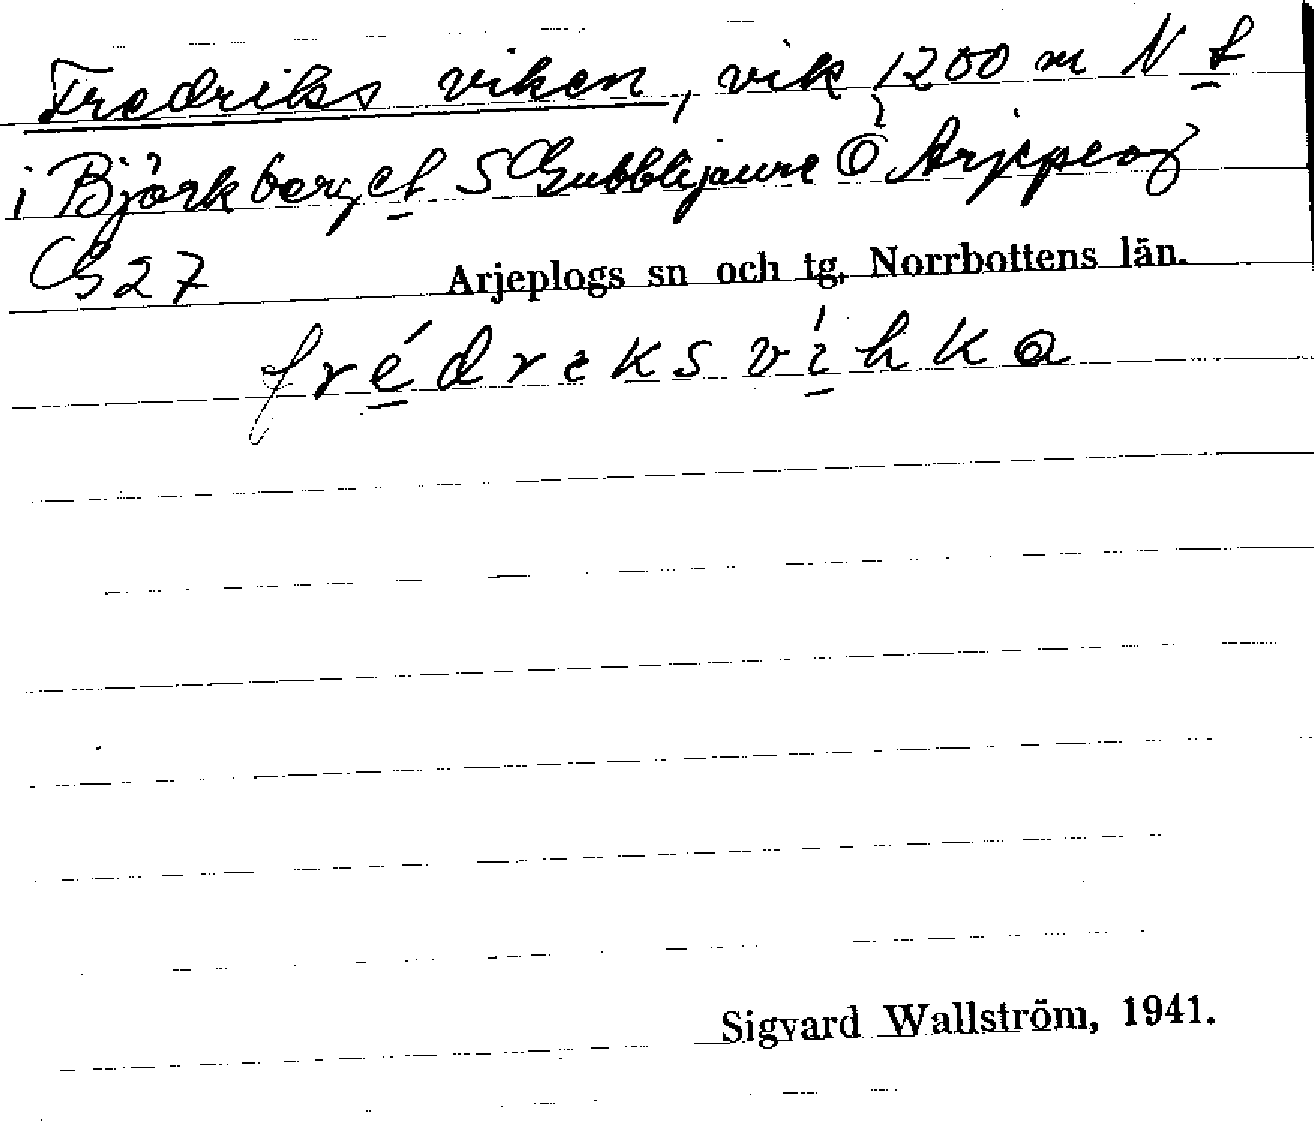 Fredriksviken, vik 1200 m N t
i Björkberget S Gubblijaure Ö Arjeplog
G27 Arjeplogs sn och tg, Norrbottens län.
frédreksvíhka
Sigvard Wallström, 1941.